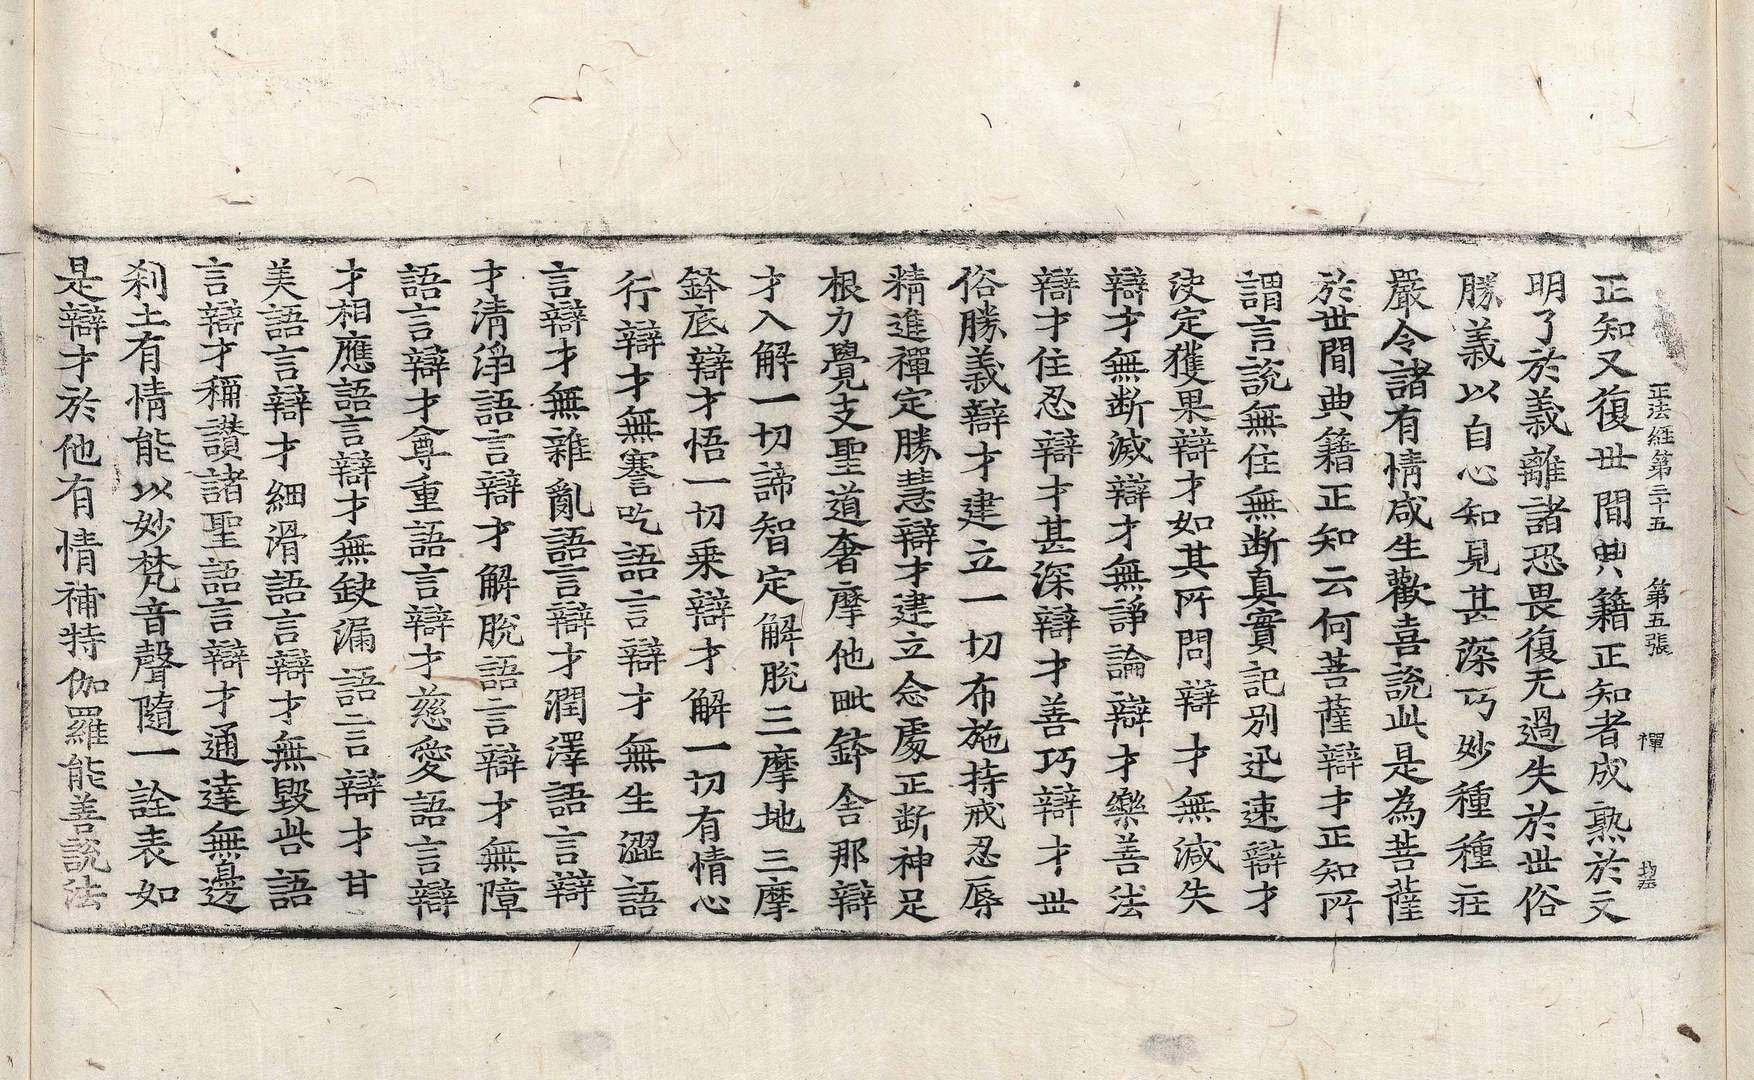 正法經第三十五　第五張　禪
正知又復世間典籍正知者成熟於文
明了於義離諸恐畏復无過失於世俗
勝義以自心知見甚深巧妙種種莊
嚴令諸有情咸生歡喜說此是為菩薩
於世間典籍正知云何菩薩辯才正知所
謂言說無住無断真實記別迅速辯才
決定獲果辯才如其所問辯才無減失
辯才無断減辯才無諍論辯才樂善法
辯才住忍辯才甚深辯才善巧辯才世
俗勝義辯才建立一切布施持戒忍辱
精進禪定勝慧辯才建立念處正断神足
根力覺支聖道奢摩他毗鉢舍那辯
才入解一切諦智定解脫三摩地三摩
鉢底辯才悟一切乘辯才解一切有情心
行辯才無謇吃語言辯才無生澀語
言辯才無雜亂語言辯才潤澤語言辯
才清淨語言辯才解脫語言辯才無障
語言辯才尊重語言辯才慈愛語言辯
才相應語言辯才無缺漏語言辯才甘
美語言辯才細滑語言辯才無毀呰語
言辯才稱讚諸聖語言辯才通達無邊
刹土有情能以妙梵音聲隨一詮表如
是辯才於他有情補特伽羅能善說法